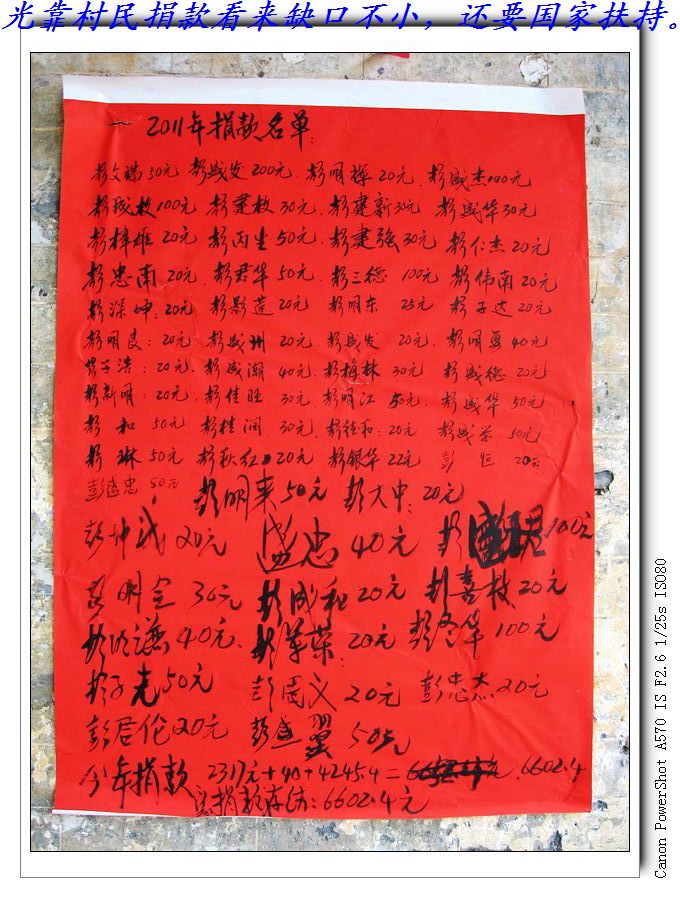 光靠村民捐款看来缺口不小，还要国家扶持。
2011年捐款名单:
彭文端50元 彭盛发200元 彭明辉20元 彭盛杰100元
彭盛枚100元 彭建枚30元 彭建新30元 彭盛华30元
彭梓雄20元 彭丙生50元 彭建强30元 彭仁杰20元
彭忠南20元 彭君华50元 彭三德100元 彭伟南20元
彭深坤:20元 彭影莲20元 彭明东25元 彭子达20元
彭明良:20元 彭盛州20元 彭盛发20元 彭明勇40元
彭子浩:20元 彭盛潮40元 彭梅林30元 彭盛德20元
彭新明:20元 彭佳旺30元 彭明江50元 彭盛华50元
彭和50元 彭桂润30元 彭 和:20元 彭盛荣50元
彭琳50元 彭秋红20元 彭银华22元 彭恒20元
彭盛忠50元 彭明来50元 彭大中:20元
彭坤 20元 盛忠40元 彭 100元
彭明宝30元 彭成和20元 彭喜枝20元
彭 40元 彭 荣20元 彭冬华100元
彭子光50元 彭国义20元 彭忠杰20元
彭君伦20元 彭盛翼50元
今年捐款2317元+40+4245.4= 6602.4
总捐款存访:6602.4元
Canon PowerShot A570 IS F2.6 1/25s ISO80